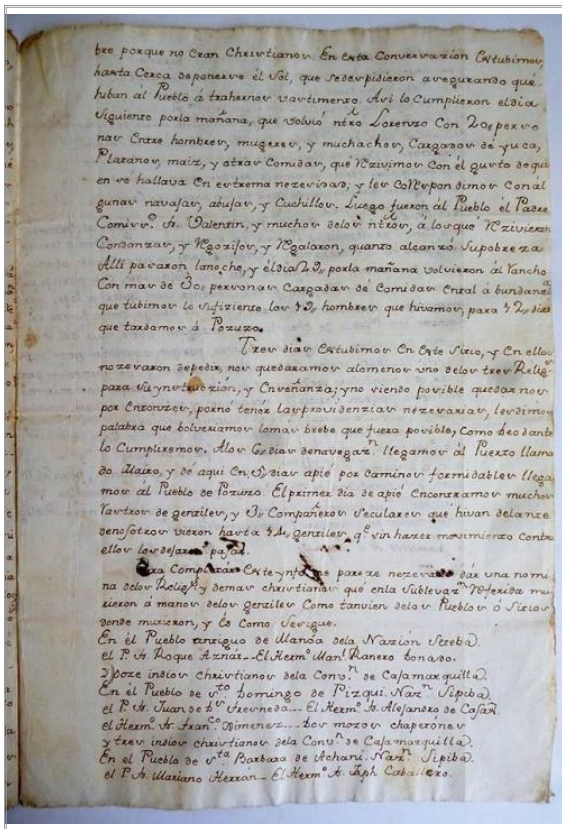 bre porque no eran Christianos. En esta Conversazion estubimos,
hasta Cerca deponerse él Sol, que sedespidieron asegurando qué
hiban ál Pueblo á trahernos vastimento. Asi lo Cumplieron eldia
siguiente porla mañana, que volvió ntrõ Lorenzo Con 20,, perso
nas Entre hombres, mugeres, y muchachos, Cargados de yuca,
Platanos, maiz, y otras Comidas, qué Rezivimos Con él gusto de qui
en se hallava En extrema nezesidad, y les CoRespondimos Con al
gunas navajas, abujas, y Cuchillos. Luego fueron ál Pueblo él Padre
Comisº. fr. Valentin, y muchos delos ntrõs, á los qué Rezivieron
Condanzas, y Rgozijos, y Rgalaron, quanto alcanzó Supobreza
Alli pasaron lanoche, y éldia 29,, porla mañana volvieron ál Rancho
Con mas de 30,, personas Cargadas de Comidas Ental á bundanzª
que tubimos lo sufiziente los hombres que hivamos, para 12,, dias
que tardamos á Pozuzo.
Tres dias Estubimos En Este Sitio, y En ellos
nozesaron depedir, nos quedaramos alomenos uno delos tres Religs
para Suynstruczión, y Enseñanza; yno siendo posible quedarnos
por Entonzes, porno tenér lasprovidenzias nezesarias, lesdimos
palabra que bolveriamos lomas brebe que fuera posible, Como Deodante
lo Cumpliremos. Alos 6,, dias denavegazn. llegamos ál Puerto llama
do Mairo, y de aqui En 5,, dias apié por caminos formidables llega
mos ál Pueblo de Pozuzo. El primer dia de apie Encontramos muchos
Rastros de gentiles, y 3,, Compañeros Seculares que hivan delante
denosotros vieron hasta 14,, gentiles, q.e sin hazer movimiento Contra
ellos los dejaron pasar.
Para Completar Este ynforme pareze nezesario dár una nomi
na delos Religs. y demas christianos que enla Sublevazn. Referida mu
rieron á manos delos gentiles Como tanvien delos Pueblos ó Sitios
donde murieron, y és Como sesigue.
En él Pueblo antiguo de Manoa dela Nazión Seteba).
el P. fr. Roque Aznár_ El Hermº. Manl. Ranero Donado.
Doze indios Christianos dela Convn. de Cajamarquilla).
En él Pueblo de Stº. Domingo de Pizqui. Nazn. Sipiba).
el P. fr. Juan de Ds. Fresneda... El Hermº. fr. Alejandro de Casas.
el Hermº. fr. Francº. Ximenez... dos mozos chaperones
y tres indios christianos dela Convn. de Cajamarquilla).
En el Pueblo de Sta. Barbara de Achani. Nazn. Sipiba).
el P. fr. Mariano Herran_ El Hermº. fr. Jsph Caballero.